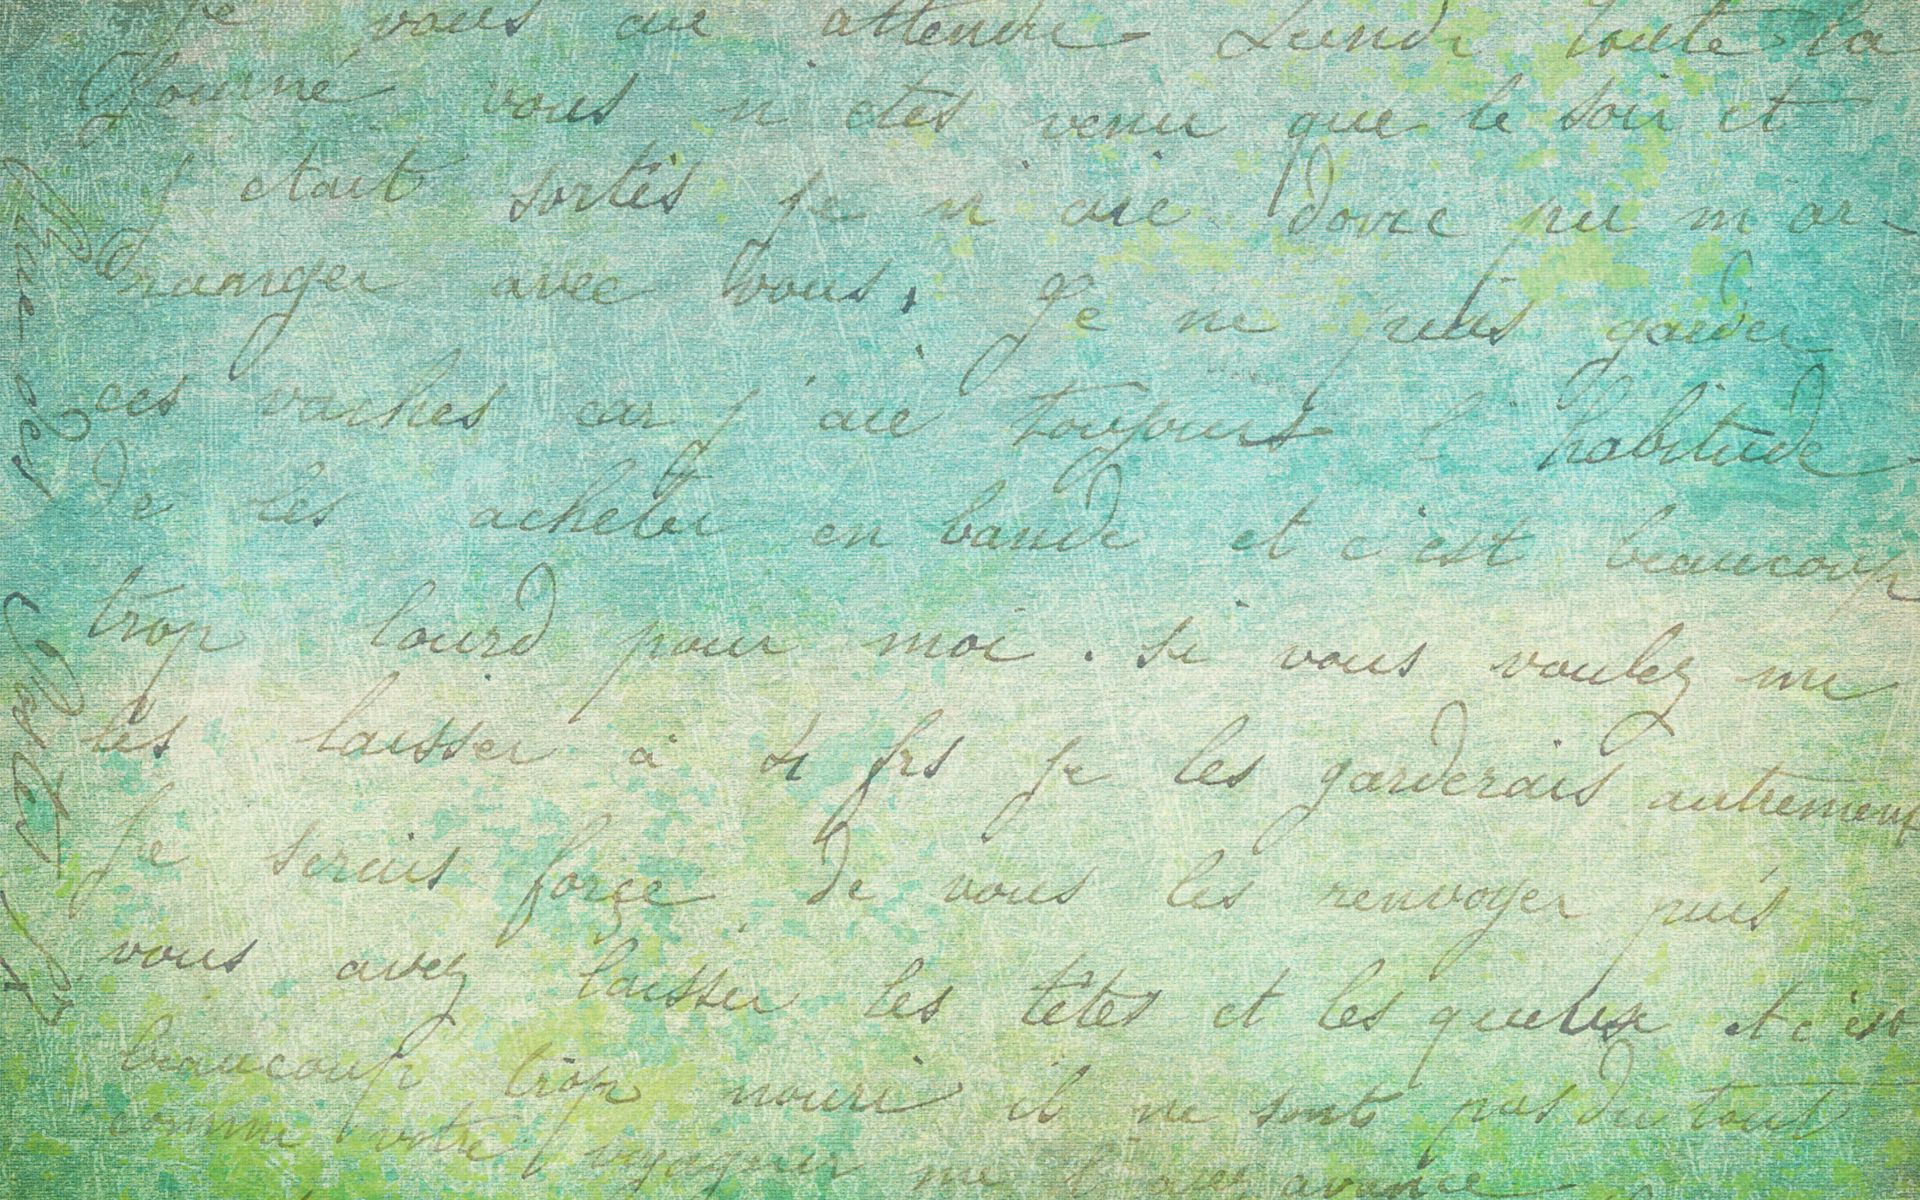 Je vous aie attendu Lundi toute la
Journé vous n'etes venu que le soir et
j etait sortis je n'aie donc pu m'ar-
ranger avec vous. Je ne puis garder
ces vaches car j'aie toujours l'habitude
de les acheter en bande et c'est beaucoup
trop lourd pour moi. si vous voulez me
les laisser à frs je les garderais autrement
Je serais forçe de vous les renvoyer puis
vous avez laisser les têtes et les queues et c'est
beaucoup trop nouri il ne sont pas du tout
comme votre voyageur me l avez avance
Rue des Postes